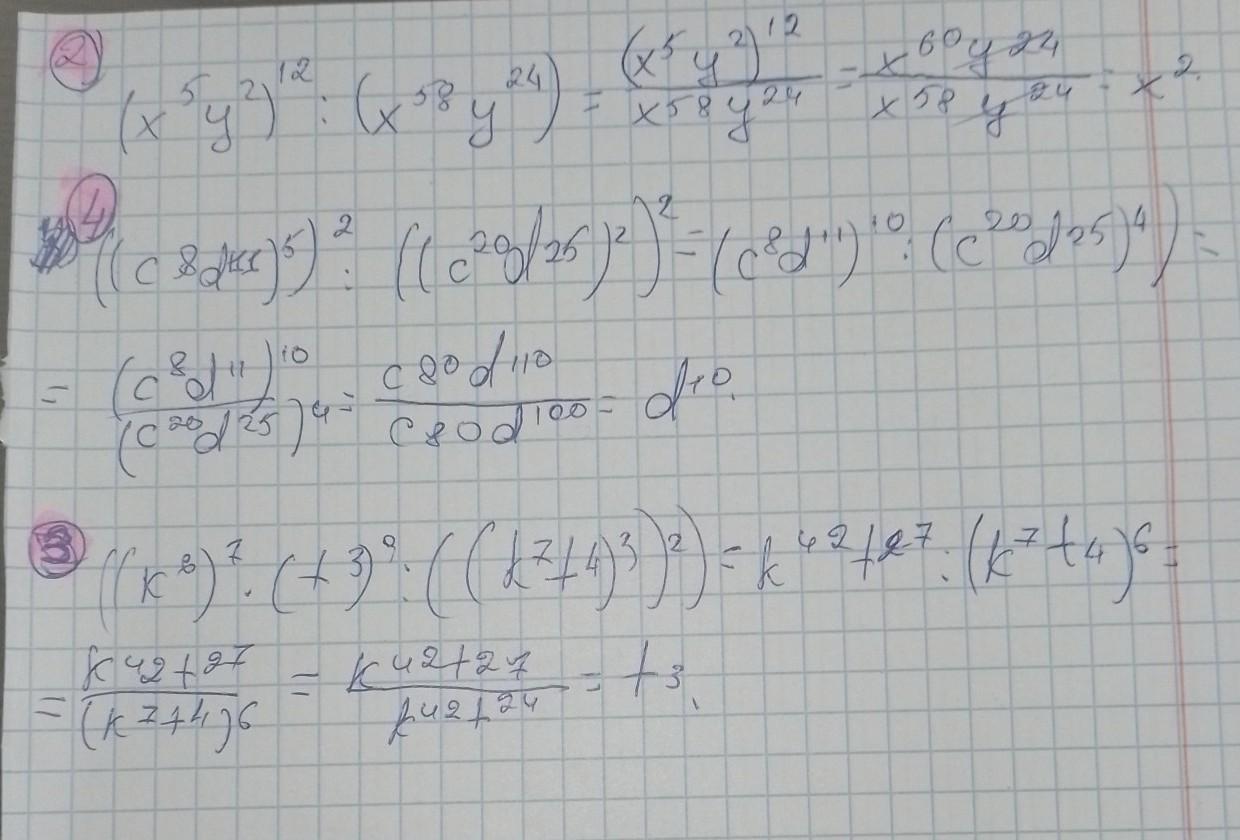 2) (x⁵y²)¹² : (x⁵⁸y²⁴) = (x⁵y²)¹² / x⁵⁸y²⁴ = x⁶⁰y²⁴ / x⁵⁸y²⁴ = x².
4) ((c⁸d¹¹)⁵)² : ((c²⁰d²⁵)²)² = (c⁸d¹¹)¹⁰ : (c²⁰d²⁵)⁴) =
= (c⁸d¹¹)¹⁰ / (c²⁰d²⁵)⁴ = c⁸⁰d¹¹⁰ / c⁸⁰d¹⁰⁰ = d¹⁰.
3) ((k⁸)⁷ · (t³)⁹ : ((k⁷t⁴)³)²) = k⁴²t²⁷ : (k⁷t⁴)⁶ =
= k⁴²t²⁷ / (k⁷t⁴)⁶ = k⁴²t²⁷ / k⁴²t²⁴ = t³.